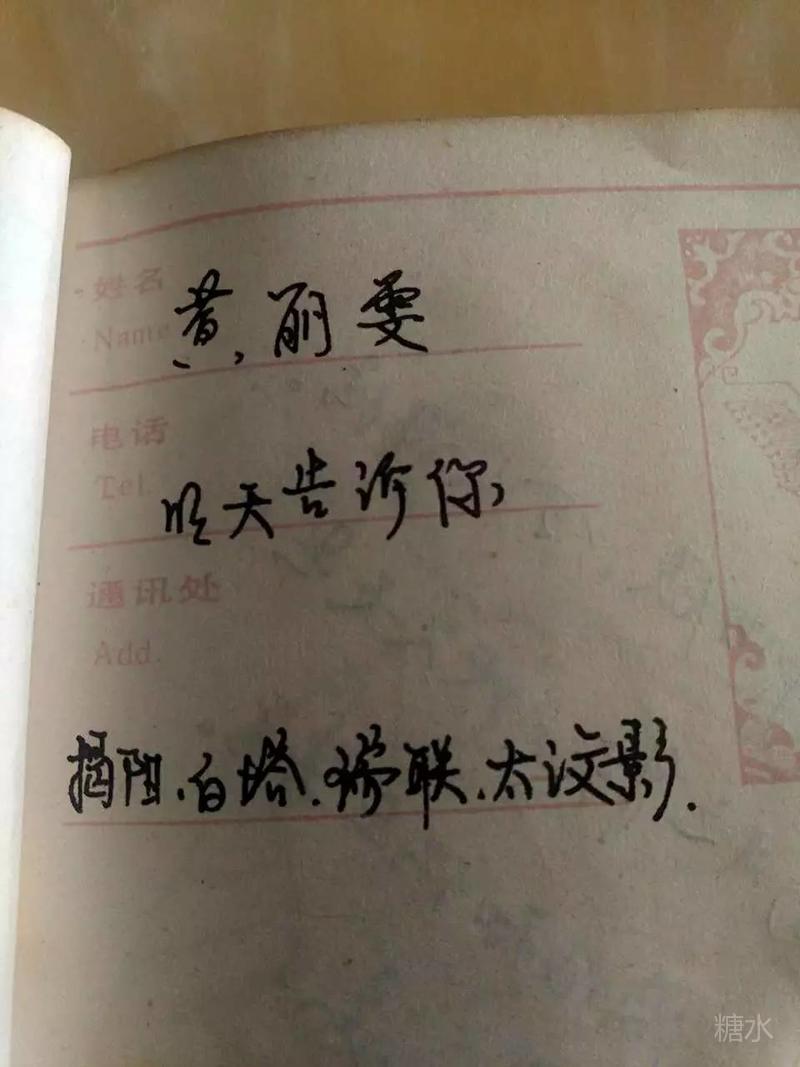 姓名
Name
黄丽雯
电话
Tel.
明天告诉你
通讯处
Add.
揭阳.白塔.瑞联.太汶影.
糖水